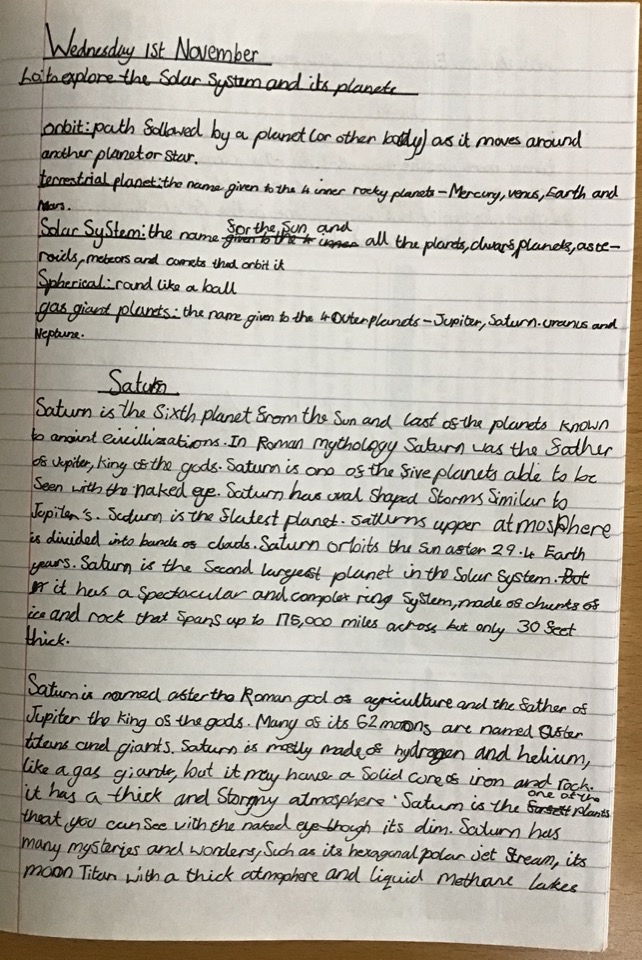 Wednesday 1st November
Lo: to explore the Solar System and its planets
orbit: path followed by a planet (or other body) as it moves around
another planet or star.
terrestrial planet: the name given to the 4 inner rocky planets - Mercury, Venus, Earth and
Mars.
for the Sun, and
Solar System: the name given to the 4 inner all the plants, dwarf planets, aste-
roids, meteors and comets that orbit it
Spherical: round like a ball
gas giant planets: the name given to the 4 Outer planets - Jupiter, Saturn. uranus and
Neptune.
Saturn
Saturn is the Sixth planet from the Sun and last of the planets known
to anciint civillizations. In Roman mythology Saturn was the father
of Jupiter, king of the gods. Saturn is one of the five planets able to be
Seen with the naked eye. Saturn has oval shaped Storms Similar to
Jupiter's. Saturn is the flatest planet. Satturns upper atmosphere
is divided into bands of clouds. Saturn orbits the Sun after 29.4 Earth
years. Saturn is the Second largest planet in the Solar System. But
it has a Spectacular and complex ring System, made of chunks of
ice and rock that Spans up to 175,000 miles across but only 30 feet
thick.
Saturn is named after the Roman god of agriculture and the father of
Jupiter the king of the gods. Many of its 62 moons are named after
titans and giants. Saturn is mostly made of hydrogen and helium,
like a gas giande, but it may have a Solid core of iron and rock.
one of the
it has a thick and Stormy atmosphere. Saturn is the plants
that you can see with the naked eye though its dim. Saturn has
many mysteries and wonders, Such as its hexagonal polar jet Stream, its
moon Titan with a thick atmophere and liquid Methane lakes